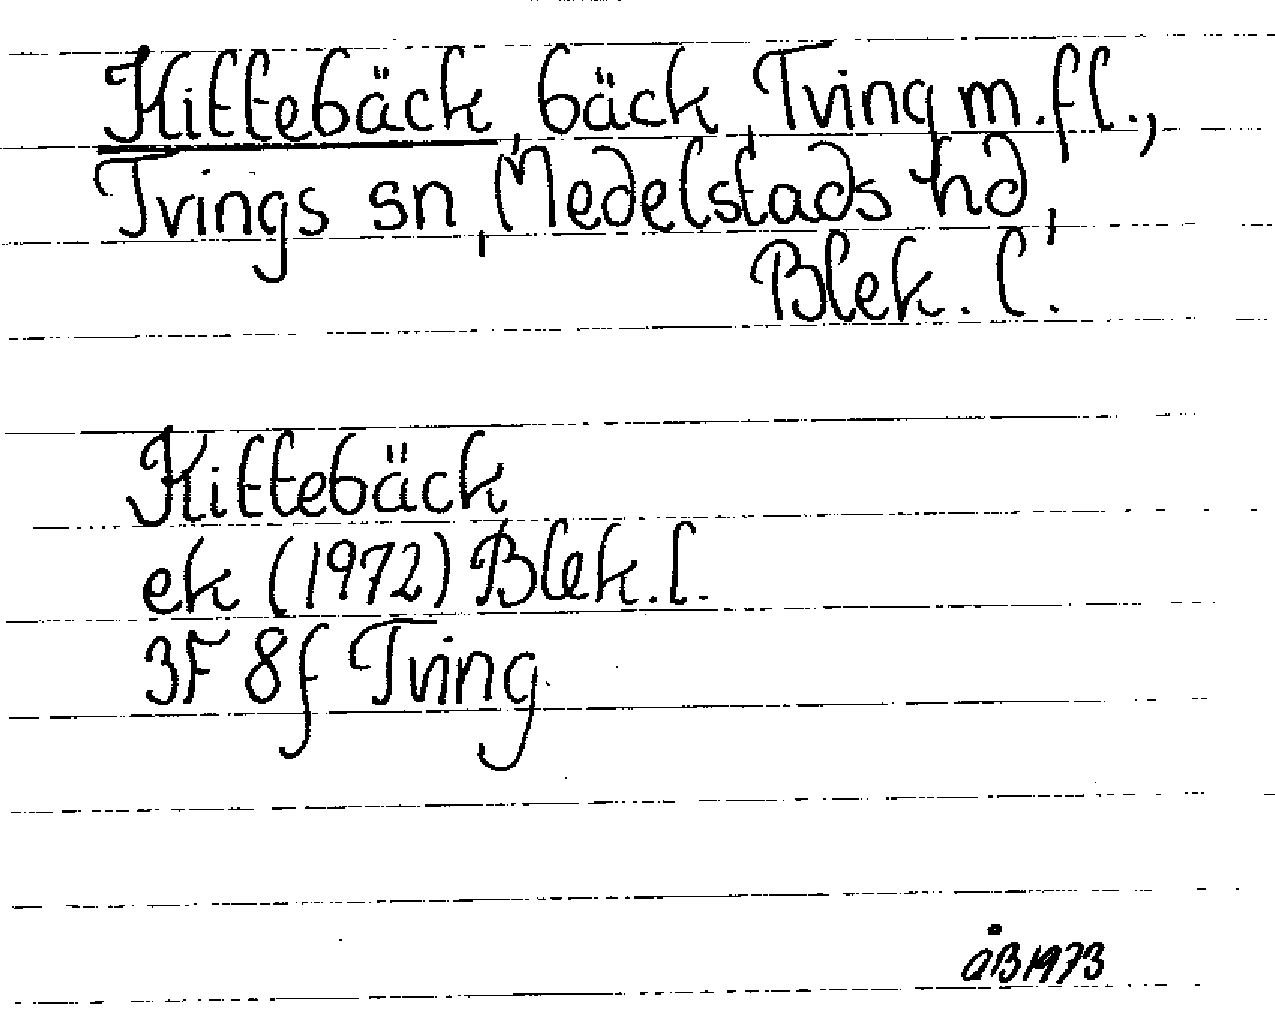 Kittebäck, bäck, Tving m.fl.,
Tvings sn, Medelstads hd,
Blek. l.
Kittebäck
ek (1972) Blek. l.
3F 8f Tving
åB 1973